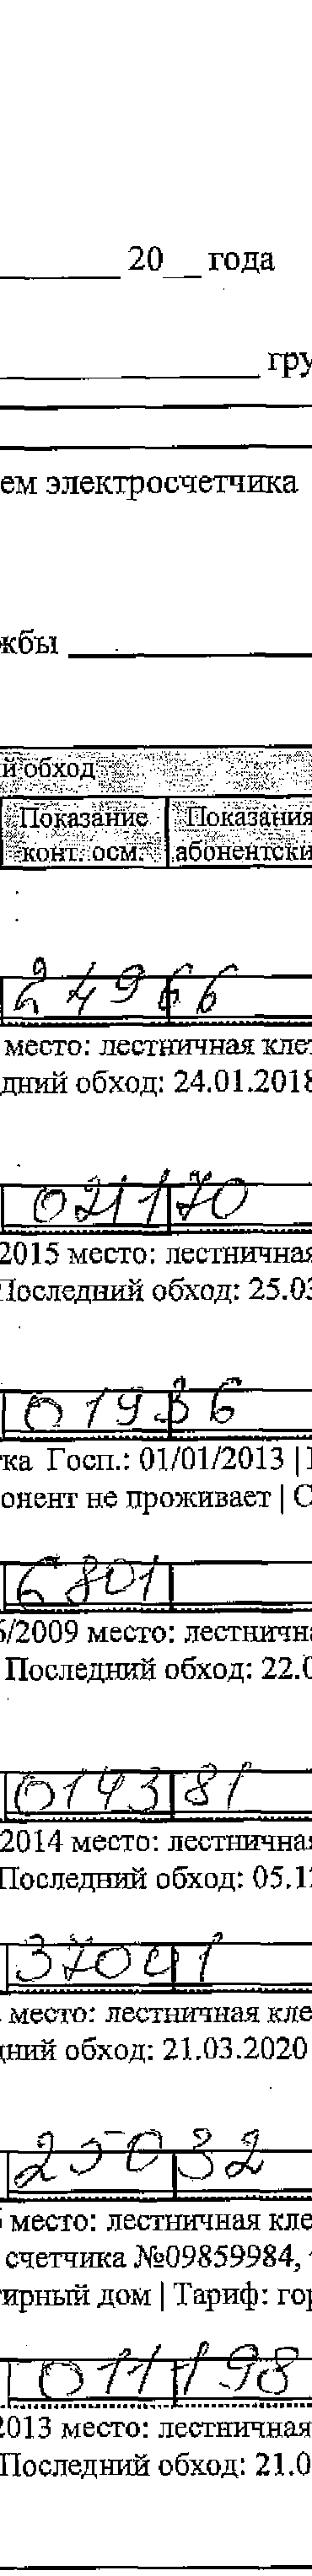 20__ года
гру
ем электросчетчика
жбы
й обход
Показание Показания
конт. осм. абонентски
24966
место: лестничная клет
дний обход: 24.01.2018
021170
2015 место: лестничная
Последний обход: 25.03
01936
тка Госп.: 01/01/2013 |
онент не проживает | С
6801
6/2009 место: лестнична
Последний обход: 22.0
014381
2014 место: лестничная
Последний обход: 05.12
37041
место: лестничная кле
дний обход: 21.03.2020
25032
место: лестничная кле
счетчика №09859984,
тирный дом | Тариф: гор
011198
2013 место: лестничная
Последний обход: 21.0